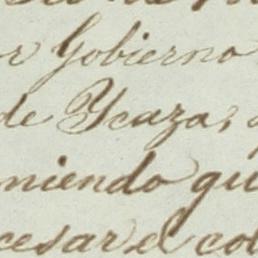 or Gobierno
de Ycaza,
niendo qu
cesar el co